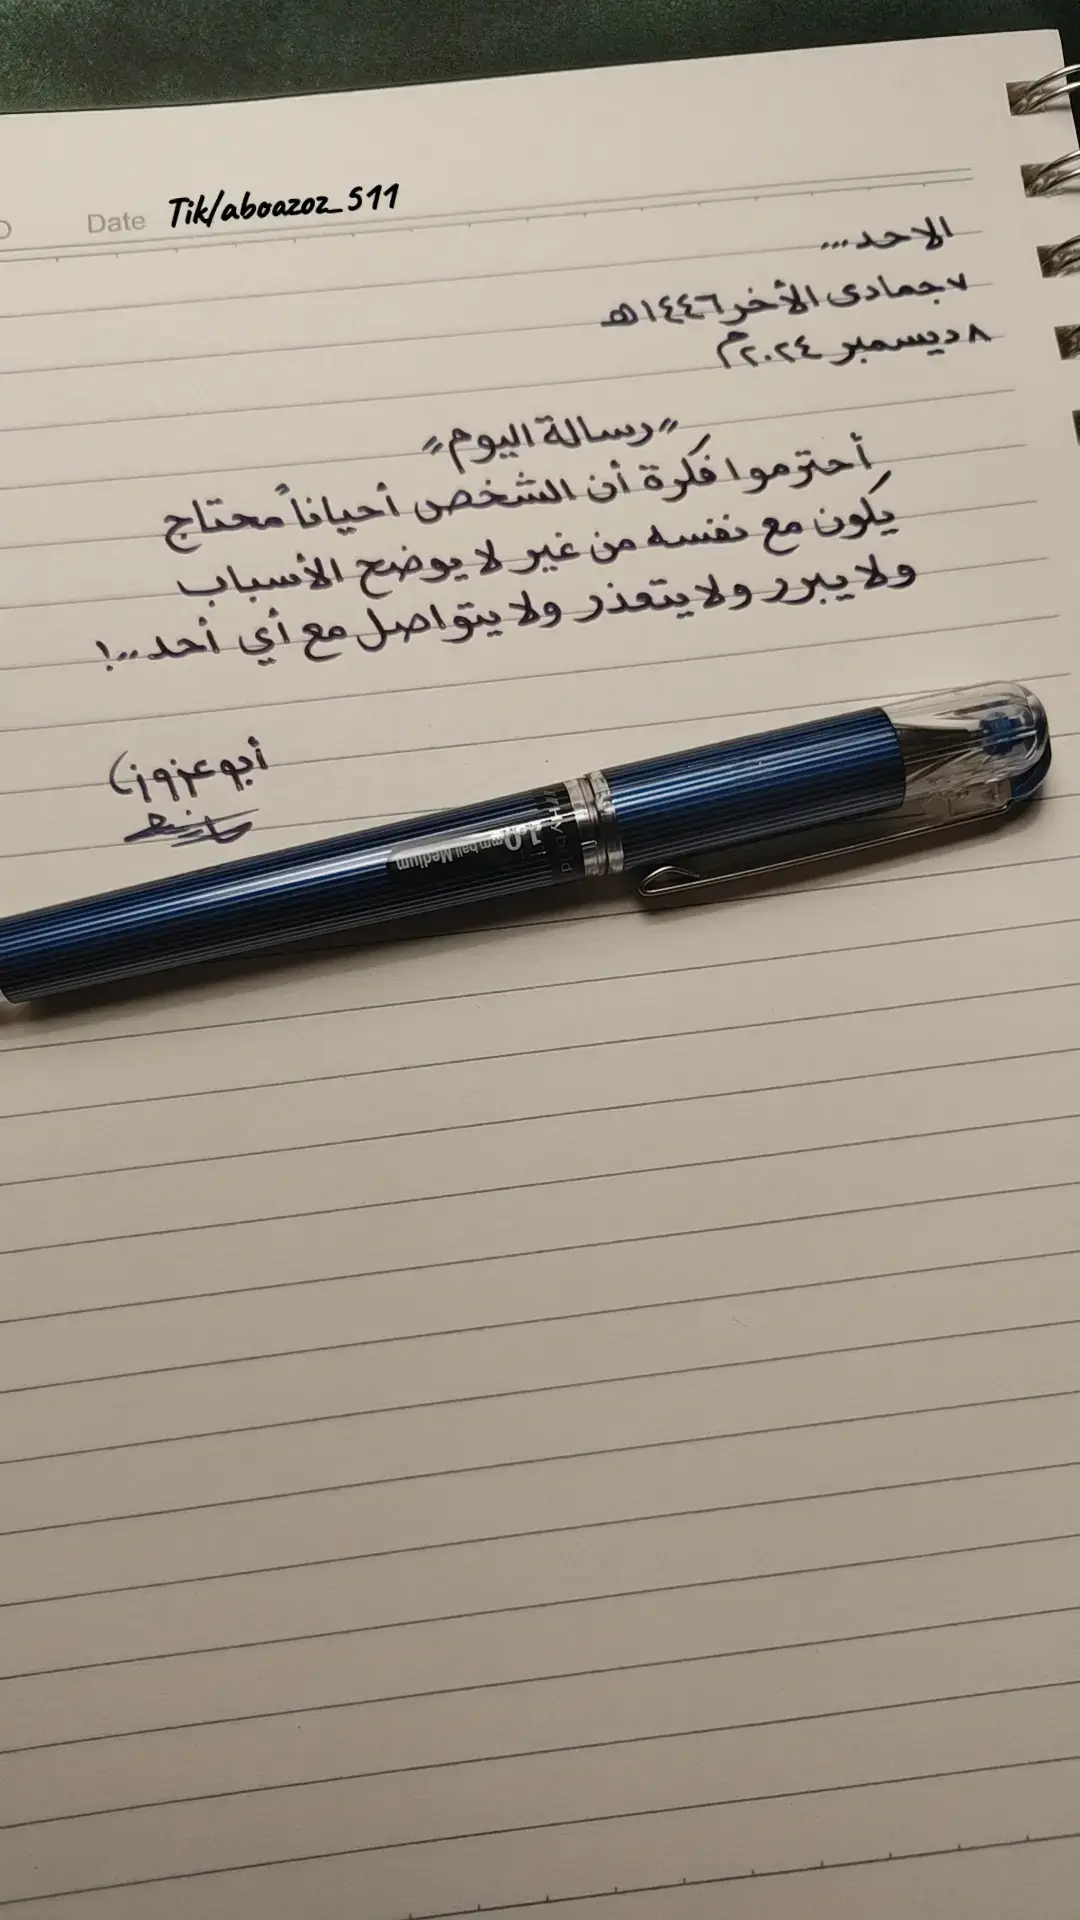 Date Tik/aboazoz_511
الاحد...
٧ جمادى الأخر ١٤٤٦هـ
٨ ديسمبر ٢٠٢٤م
"رسالة اليوم"
أحترموا فكرة أن الشخص أحياناً محتاج
يكون مع نفسه من غير لا يوضح الأسباب
ولا يبرر ولا يتعذر ولا يتواصل مع أي أحد..!
أبو عزوز)
Hybrid
1.0 mm ball Medium